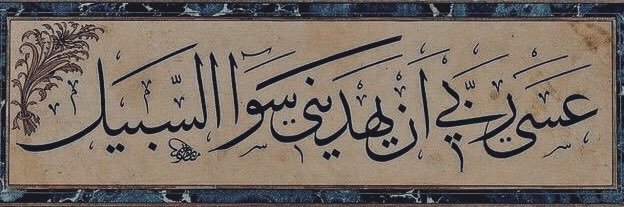 عَسَى رَبِّي أَنْ يَهْدِيَنِي سَوَاءَ السَّبِيلِ